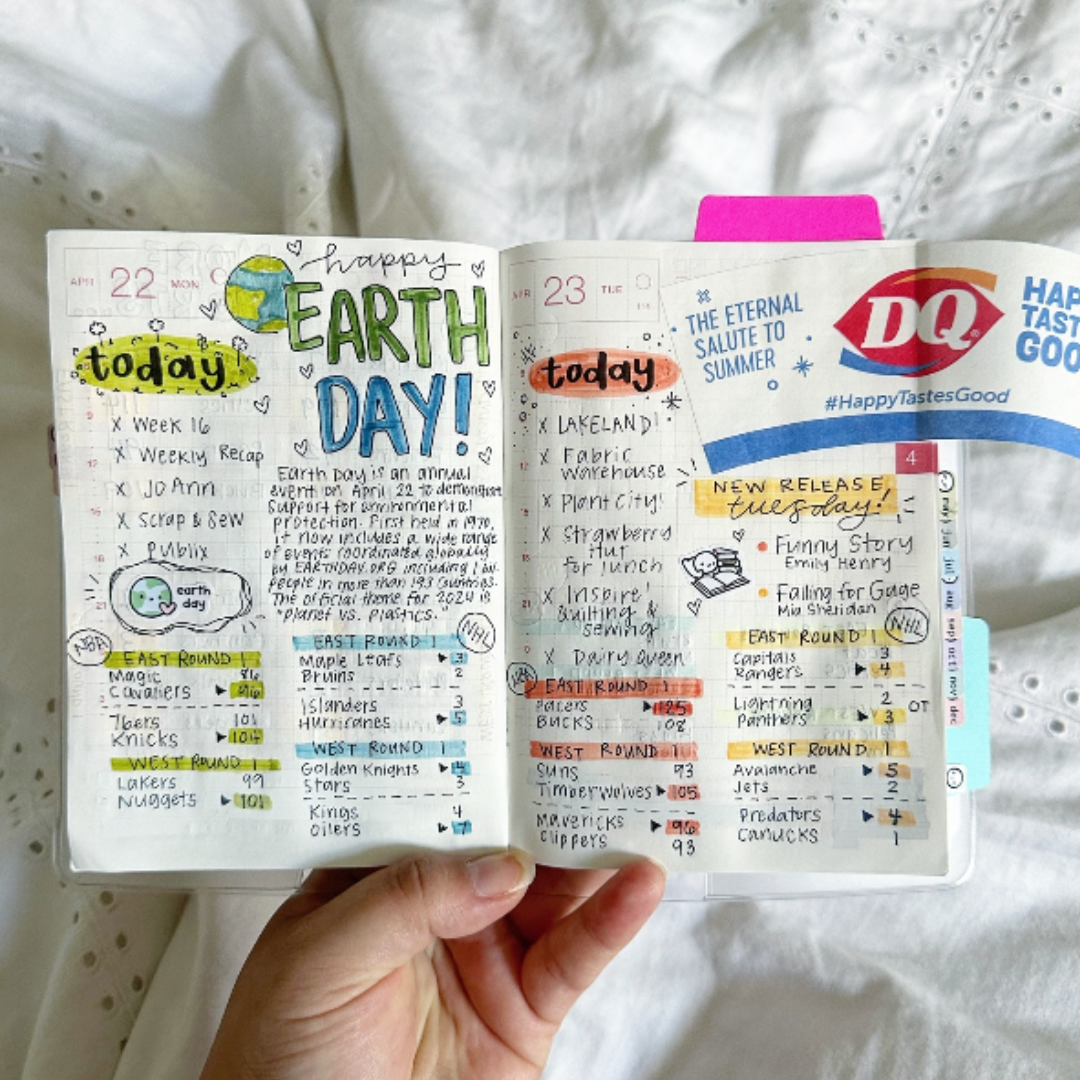 APR 22 MON
happy
EARTH
DAY!
today
x Week 16
x Weekly Recap
x Jo Ann
x Scrap & Sew
x Publix
earth
day
Earth Day is an annual
event on April 22 to demonstrate
support for environmental
protection. First held in 1970,
it now includes a wide range
of events coordinated globally
by EARTHDAY.ORG including 1 bil
people in more than 193 countries.
The official theme for 2024 is
"planet vs. plastics."
NBA
EAST ROUND 1
Magic 86
Cavaliers ▶ 96
76ers 101
Knicks ▶ 104
WEST ROUND 1
Lakers 99
Nuggets ▶ 101
NHL
EAST ROUND 1
Maple Leafs ▶ 3
Bruins 2
Islanders 3
Hurricanes ▶ 5
WEST ROUND 1
Golden Knights ▶ 4
Stars 3
Kings 4
Oilers ▶ 7
APR 23 TUE
today
x LAKELAND!
x Fabric
warehouse
x Plant City!
x Strawberry
Hut
for lunch
x Inspire!
Quilting &
sewing
x Dairy Queen
NBA
EAST ROUND 1
Pacers ▶ 125
Bucks 108
WEST ROUND 1
Suns 93
Timberwolves ▶ 105
Mavericks ▶ 96
Clippers 93
THE ETERNAL
SALUTE TO
SUMMER
DQ®
HAP
TAST
GOO
#HappyTastesGood
4
NEW RELEASE
tuesday!
Funny Story
Emily Henry
Falling for Gage
Mia Sheridan
NHL
EAST ROUND 1
Capitals 3
Rangers ▶ 4
Lightning 2 OT
Panthers ▶ 3
WEST ROUND 1
Avalanche ▶ 5
Jets 2
Predators ▶ 4
Canucks 1
may
jun
jul
aug
sep
oct
nov
dec